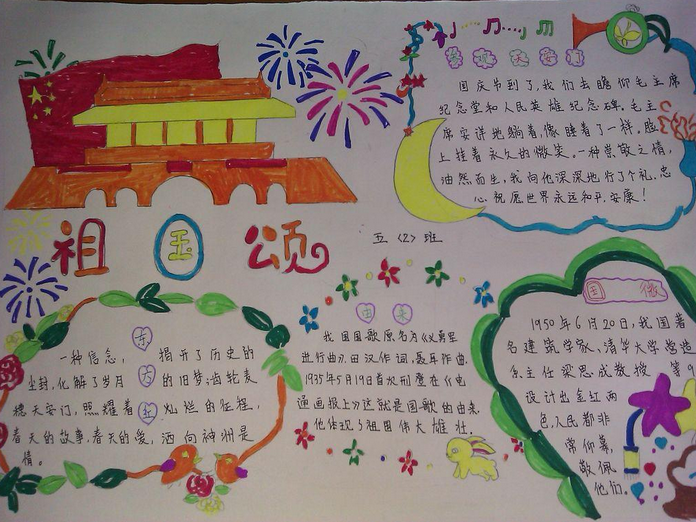 参观天安门
国庆节到了,我们去瞻仰毛主席
纪念堂和人民英雄纪念碑。毛主
席安详地躺着,像睡着了一样。脸
上挂着永久的微笑。一种崇敬之情,
油然而生,我向他深深地行了个礼,忠
心祝愿世界永远和平,安康!
祖国颂
五〈2〉班
东方红
一种信念,揭开了历史的
尘封,化解了岁月的旧梦;齿轮麦
穗天安门,照耀着灿烂的征程,
春天的故事,春天的爱,洒向神洲是
情。
由来
我国国歌原名为《义勇军
进行曲》,田汉作词,聂耳作曲。
1935年5月19日首次刊应在《电
通画报上》这就是国歌的由来。
他体现了祖国伟大雄壮。
国徽
1950年6月20日,我国著
名建筑学家、清华大学营造
系主任梁思成教授 第9
设计出金红两
色,人民都非
常仰幕,
敬佩
他们。